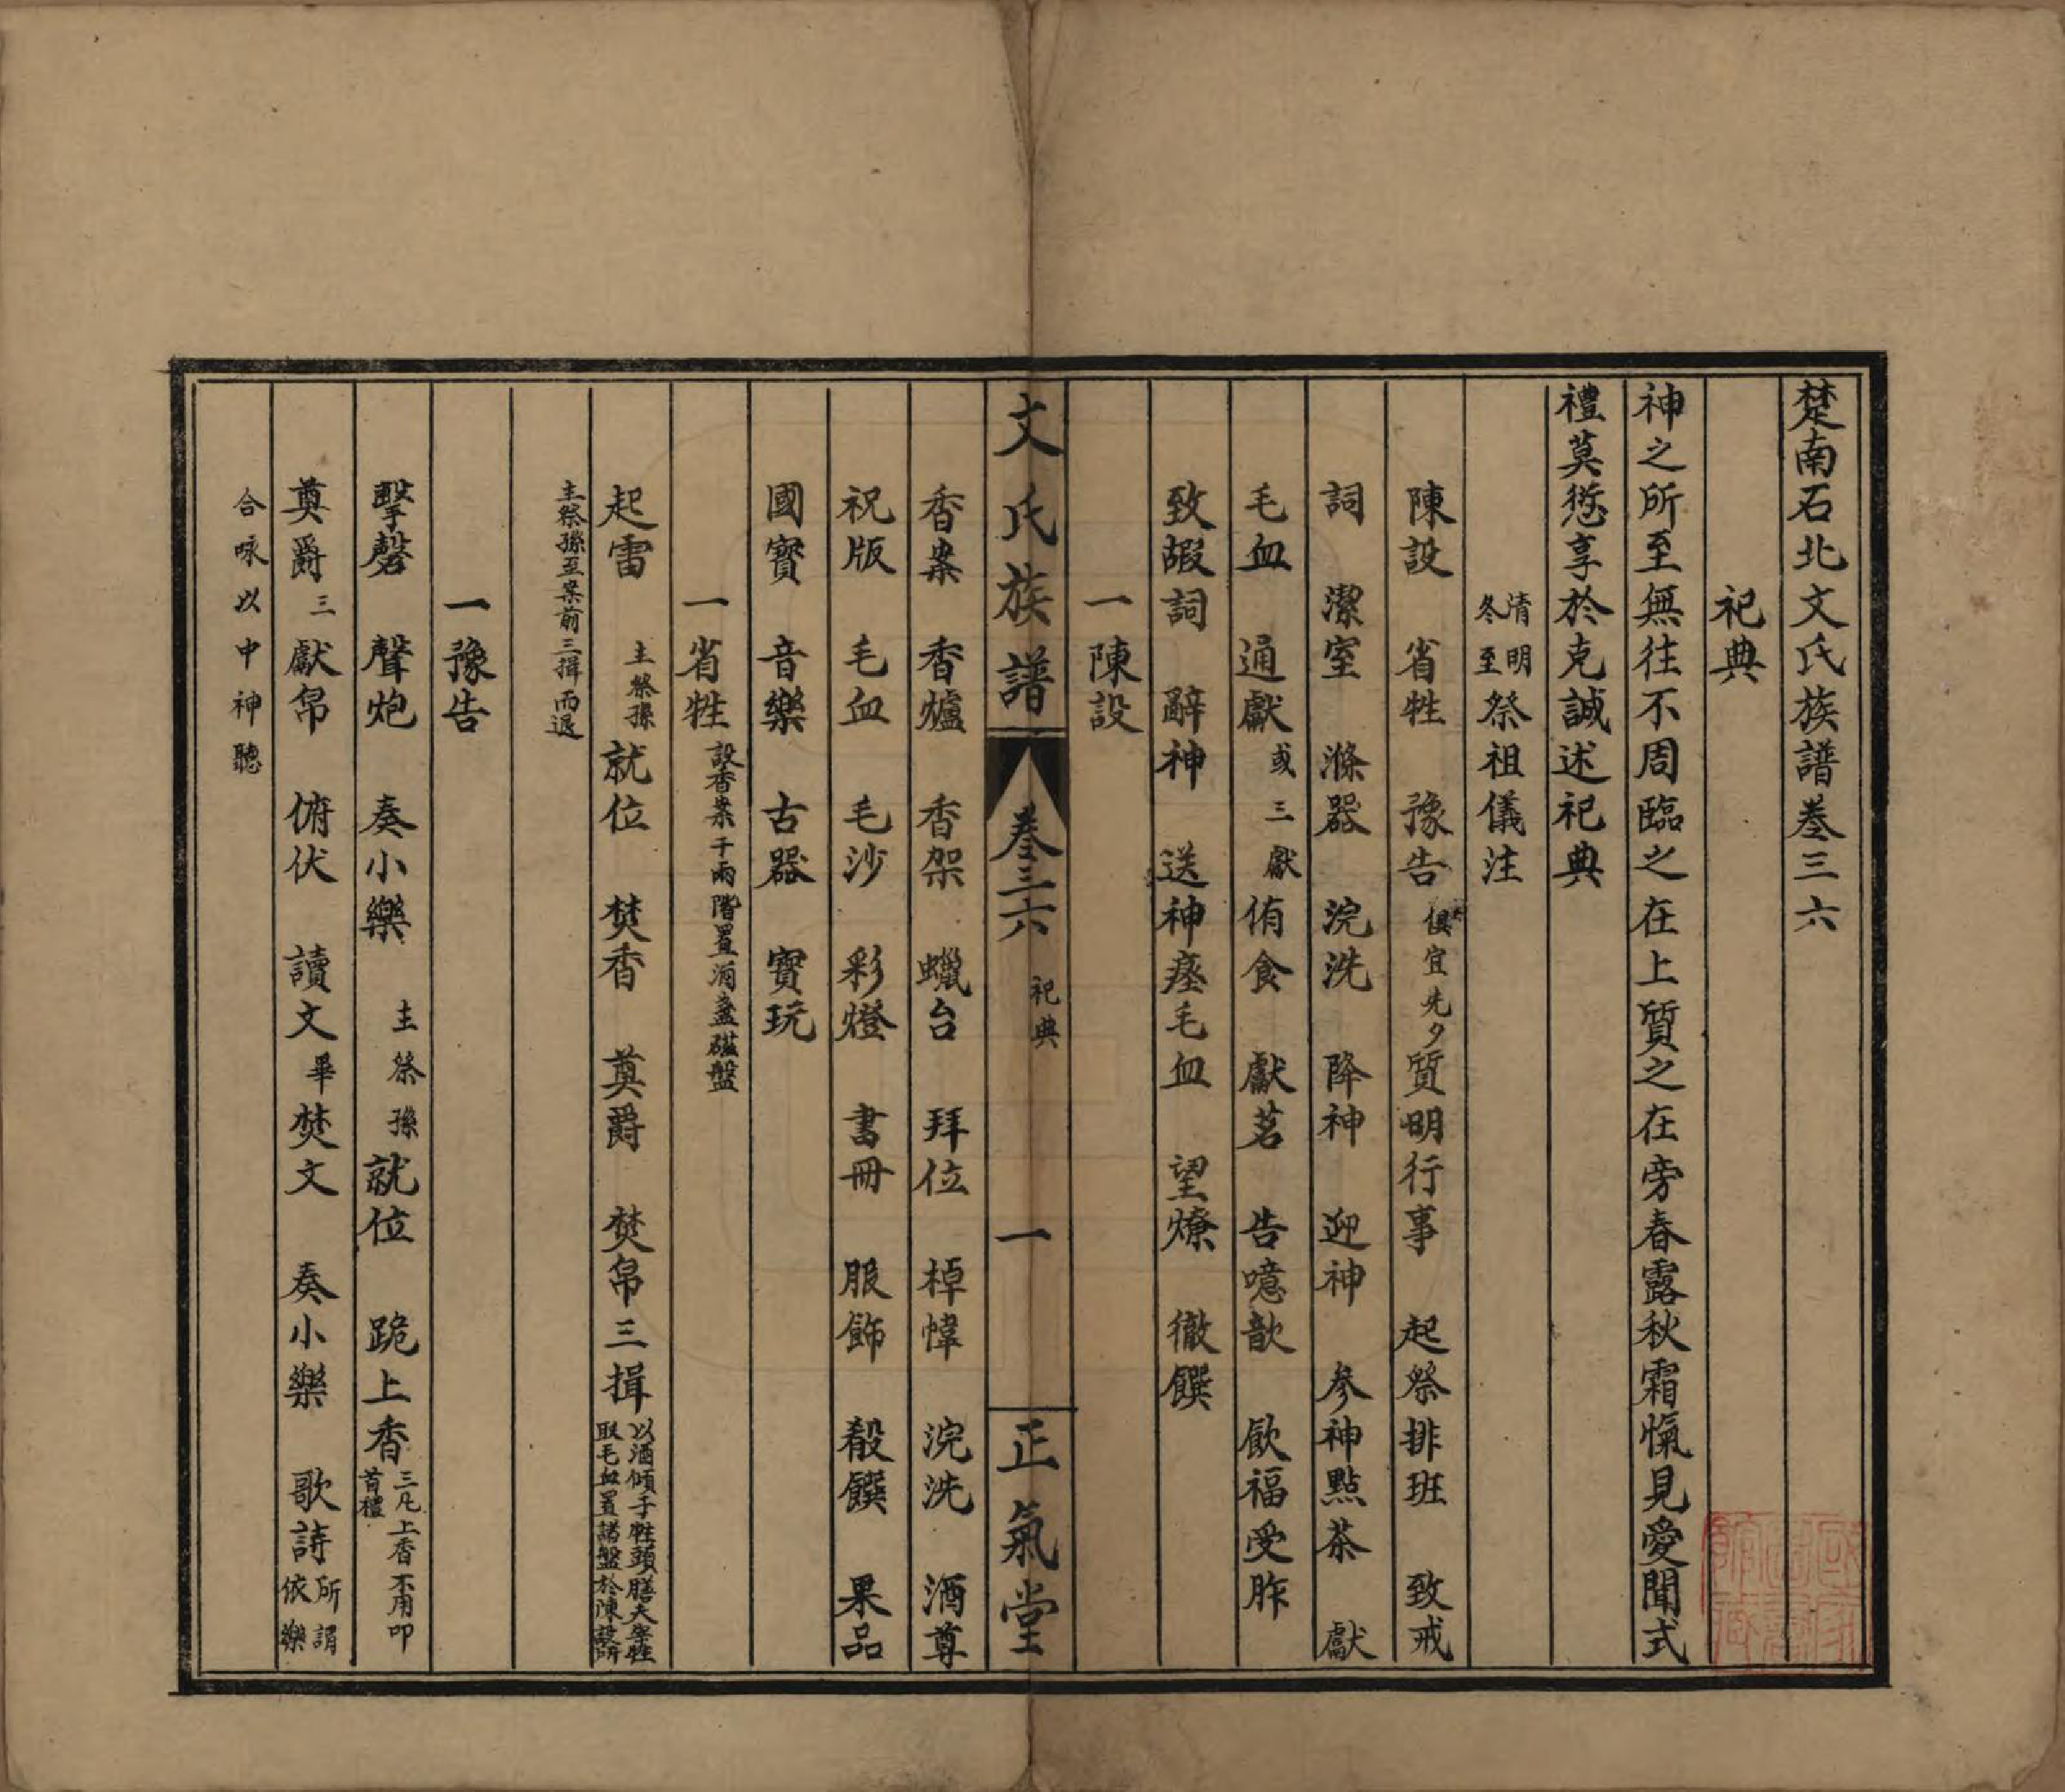 楚南石北文氏族譜卷三六
祀典
神之所至無往不周臨之在上質之在旁春露秋霜愾見愛聞式
禮莫愆享於克誠述祀典
清明冬至祭祖儀注
陳設　省牲　豫告俱宜先夕質明行事　起祭排班　致戒
詞　潔室　滌器　浣洗　降神　迎神　參神點茶　獻
毛血　通獻或三獻侑食　獻茗　告噫歆　飲福受胙
致嘏詞　辭神　送神瘞毛血　望燎　徹饌
一陳設
文氏族譜　卷三六　祀典　一　正氣堂
香案　香爐　香架　蠟台　拜位　棹幃　浣洗　酒尊
祝版　毛血　毛沙　彩燈　書冊　服飾　殽饌　果品
國寶　音樂　古器　寶玩
一省牲設香案于兩階置酒盞磁盤
起雷　主祭孫就位　焚香　奠爵　焚帛三揖以酒傾于牲頭膳夫宰牲取毛血置諸盤於陳設所
主祭孫至案前三揖而退
一豫告
擊磬　聲炮　奏小樂　主祭孫就位　跪上香三凡上香不用叩首禮
奠爵三獻帛　俯伏　讀文畢焚文　奏小樂　歌詩所謂依樂
合咏以中神聽